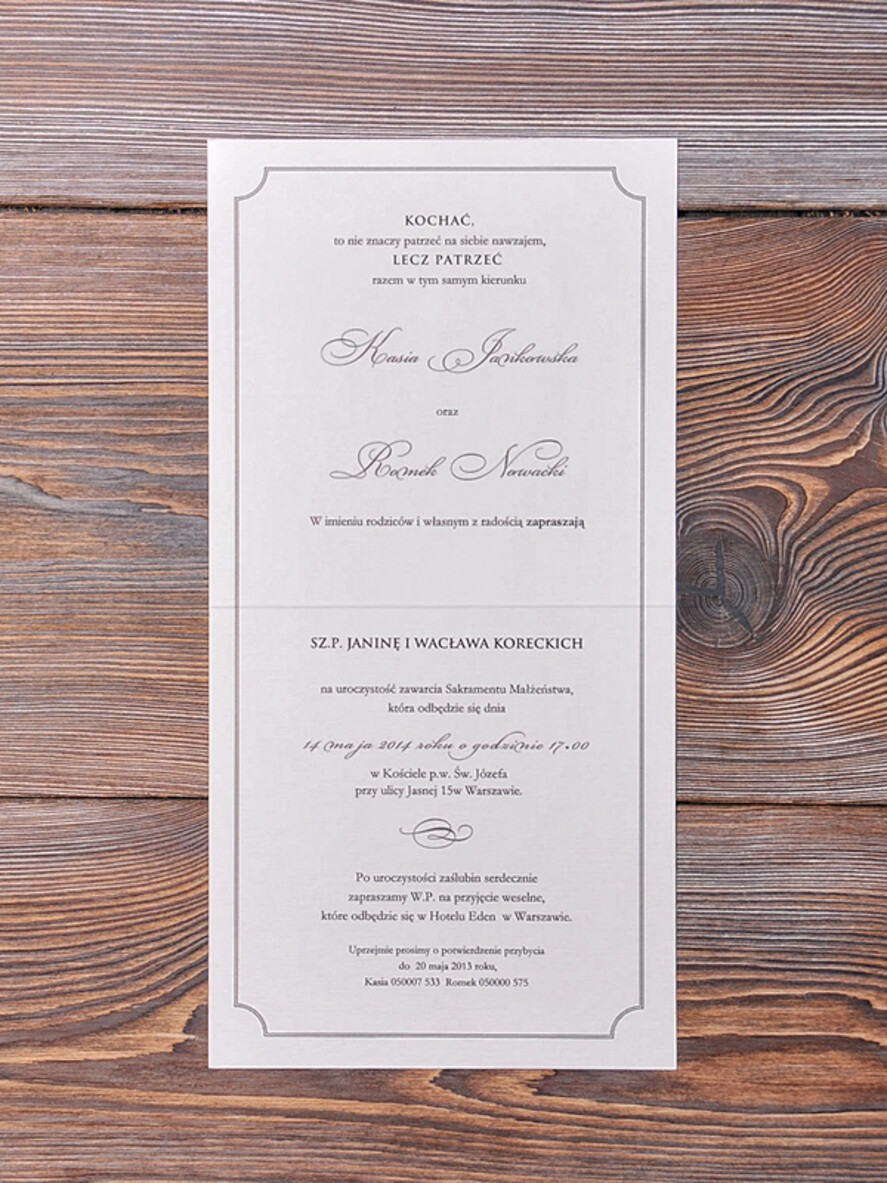 KOCHAĆ,
to nie znaczy patrzeć na siebie nawzajem,
LECZ PATRZEĆ
razem w tym samym kierunku
Kasia Janikowska
oraz
Romek Nowacki
W imieniu rodziców i własnym z radością zapraszają
SZ.P. JANINĘ I WACŁAWA KORECKICH
na uroczystość zawarcia Sakramentu Małżeństwa,
która odbędzie się dnia
14 maja 2014 roku o godzinie 17.00
w Kościele p.w. Św. Józefa
przy ulicy Jasnej 15w Warszawie.
Po uroczystości zaślubin serdecznie
zapraszamy W.P. na przyjęcie weselne,
które odbędzie się w Hotelu Eden w Warszawie.
Uprzejmie prosimy o potwierdzenie przybycia
do 20 maja 2013 roku,
Kasia 050007 533 Romek 050000 575